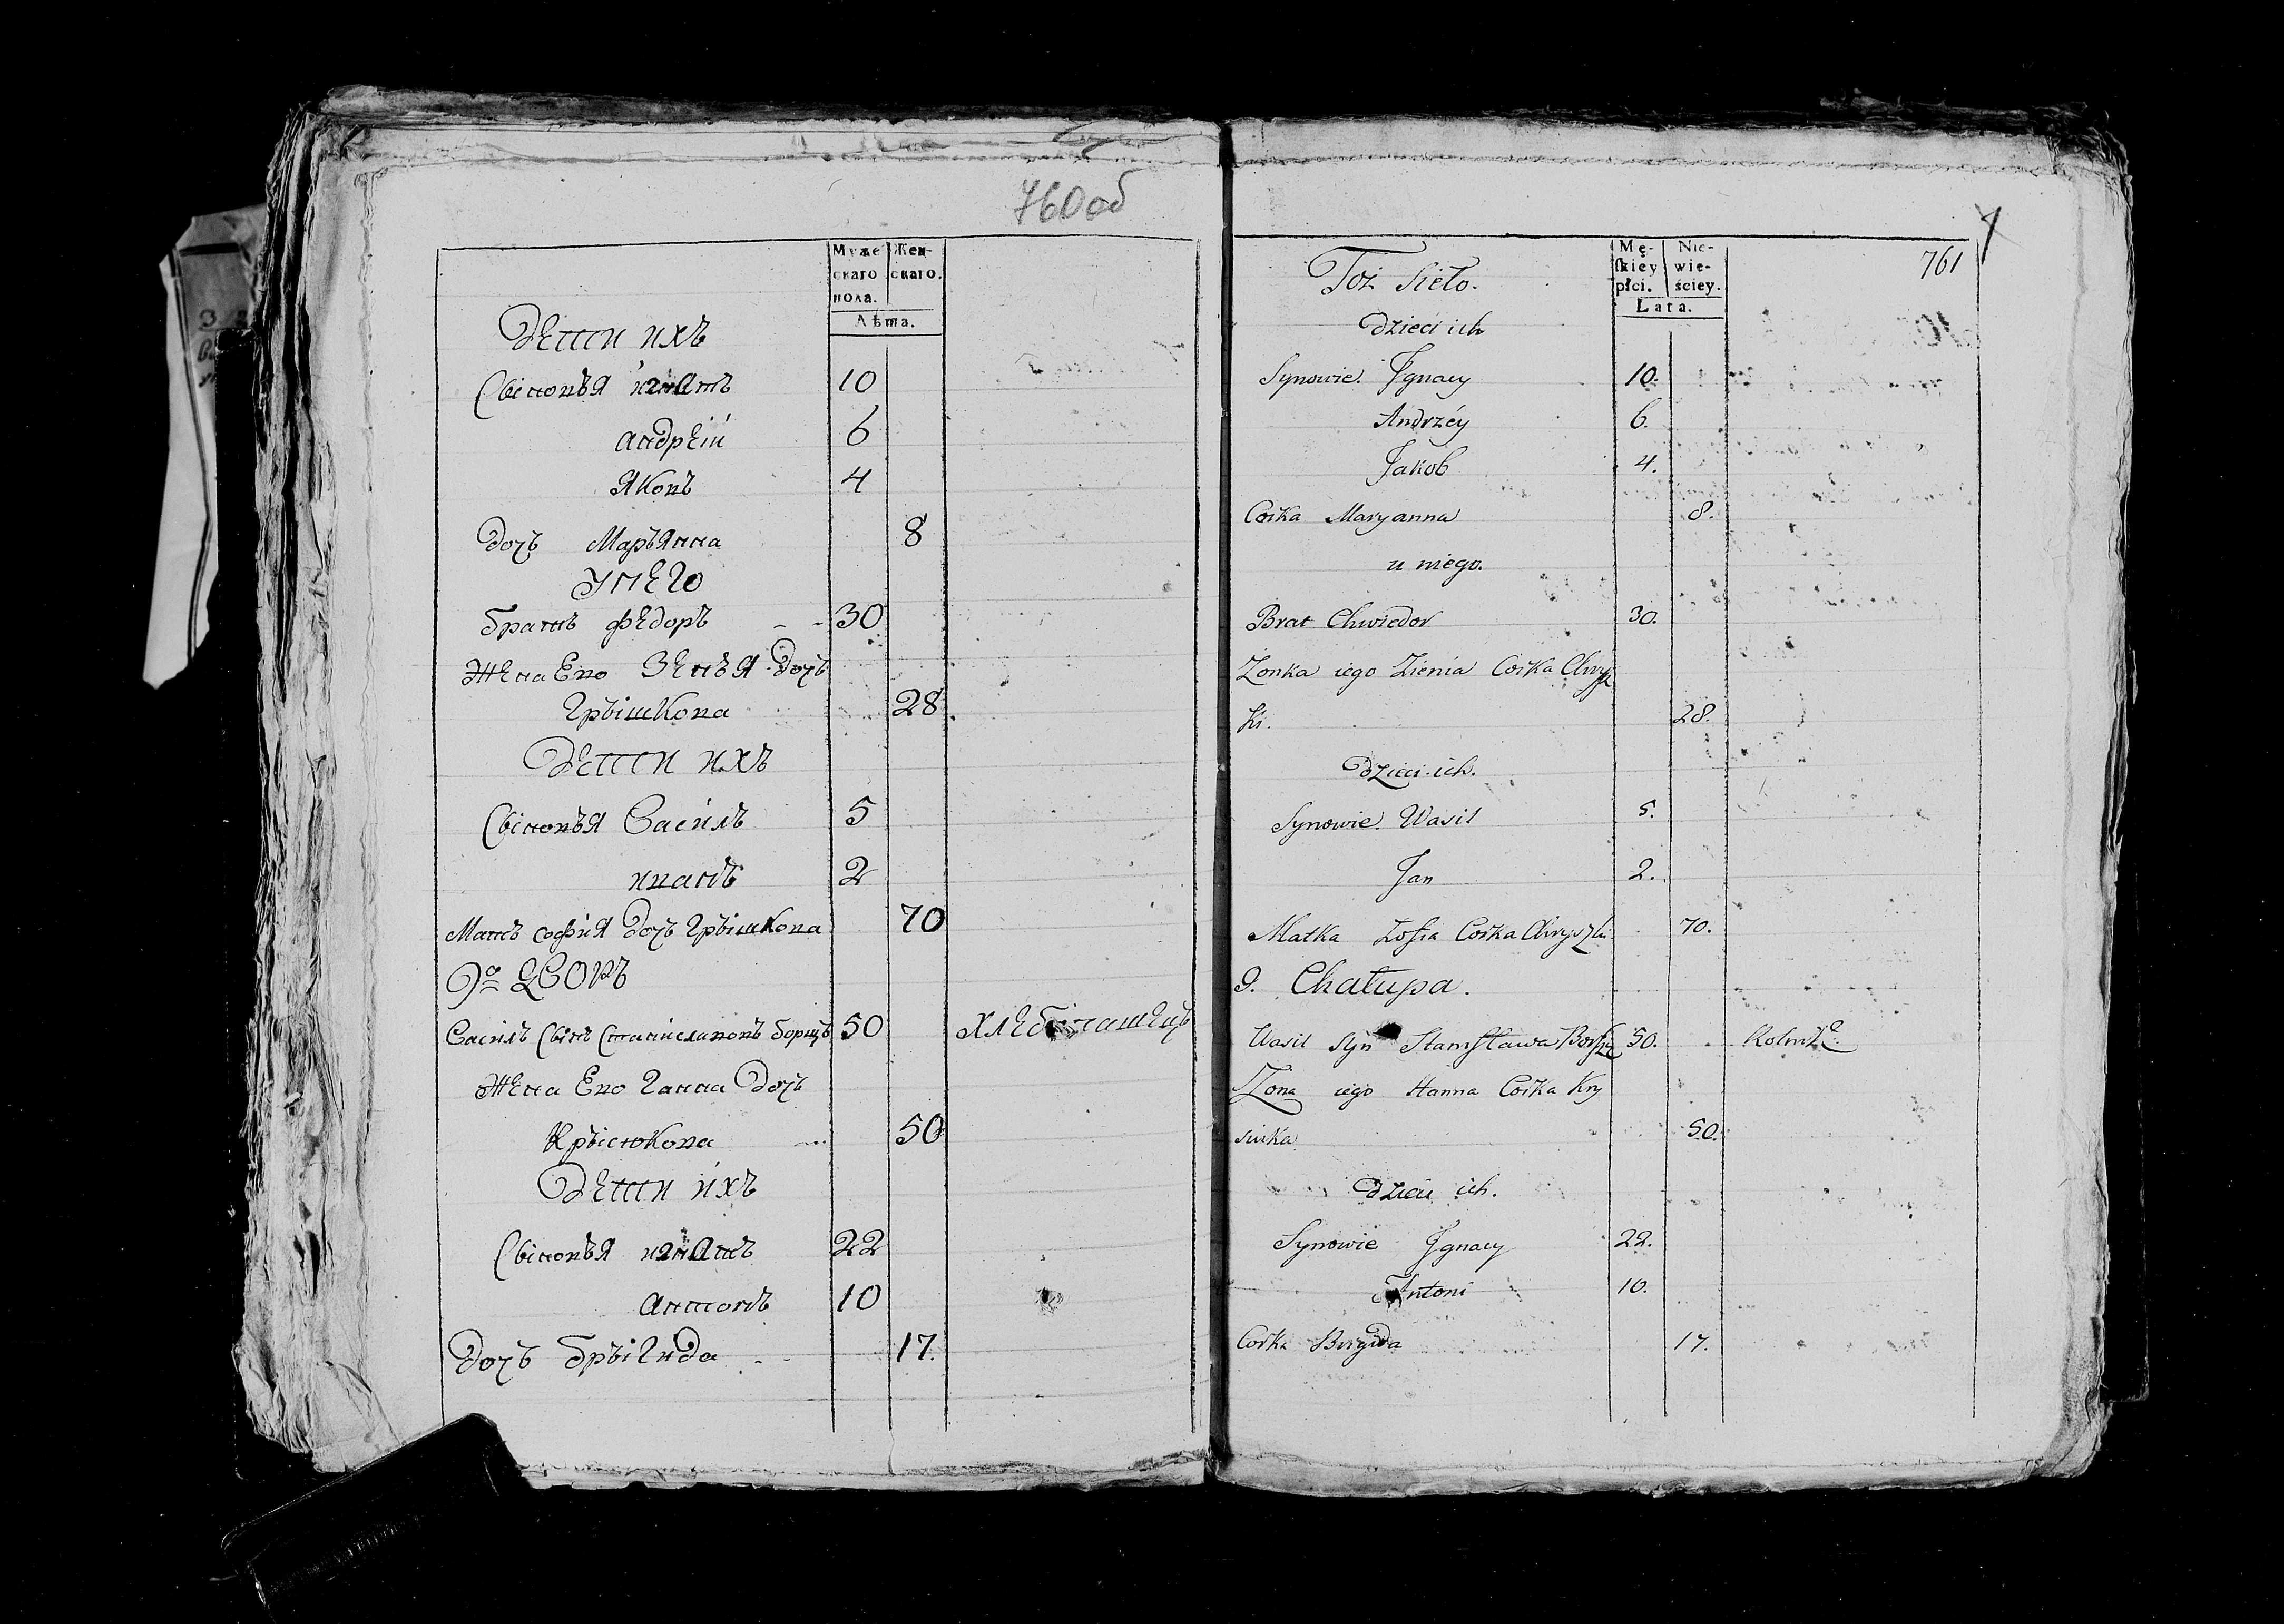 760об
Муже
скаго
пола.
Жен-
скаго.
Лѣта.
Дети ихъ
Сыновья игнатъ 10
андрей 6
Яковъ 4
Дочь Марьянна 8
У него
братъ федоръ 30
Жена Его Зенья Дочь
Грышкова 28
Дети ихъ
Сыновья Василъ 5
иванъ 2
Мать софия Дочь Грышкова 70
9й Дворъ
Василъ Сынъ Станиславовъ борщъ 50 хлебопашецъ
Жена Его Ганна Дочь
Крысюкова 50
Дети ихъ
Сыновья игнатъ 22
антонъ 10
Дочь брыгида 17.
761
Toż Sieło.
Mę-
skiey
płci.
Nie-
wie-
ściey.
Lata.
Dzieci ich
Synowie. Jgnacy 10.
Andrzéy 6.
Jakob 4.
Corka Maryanna 8.
u niego.
Brat Chwiedor 30.
Zonka iego Zienia Corka Chrysz
ki. 28.
Dzieci ich.
Synowie. Wasil 5.
Jan 2.
Matka Zofia Corka Chryszki 70.
9. Chałupa.
Wasil Syn Stanisława Borszcz 50.
Zona iego Hanna Corka Kry
siuka 50.
Dzieci ich.
Synowie Jgnacy 22.
Antoni 10.
Corka Brygida 17.